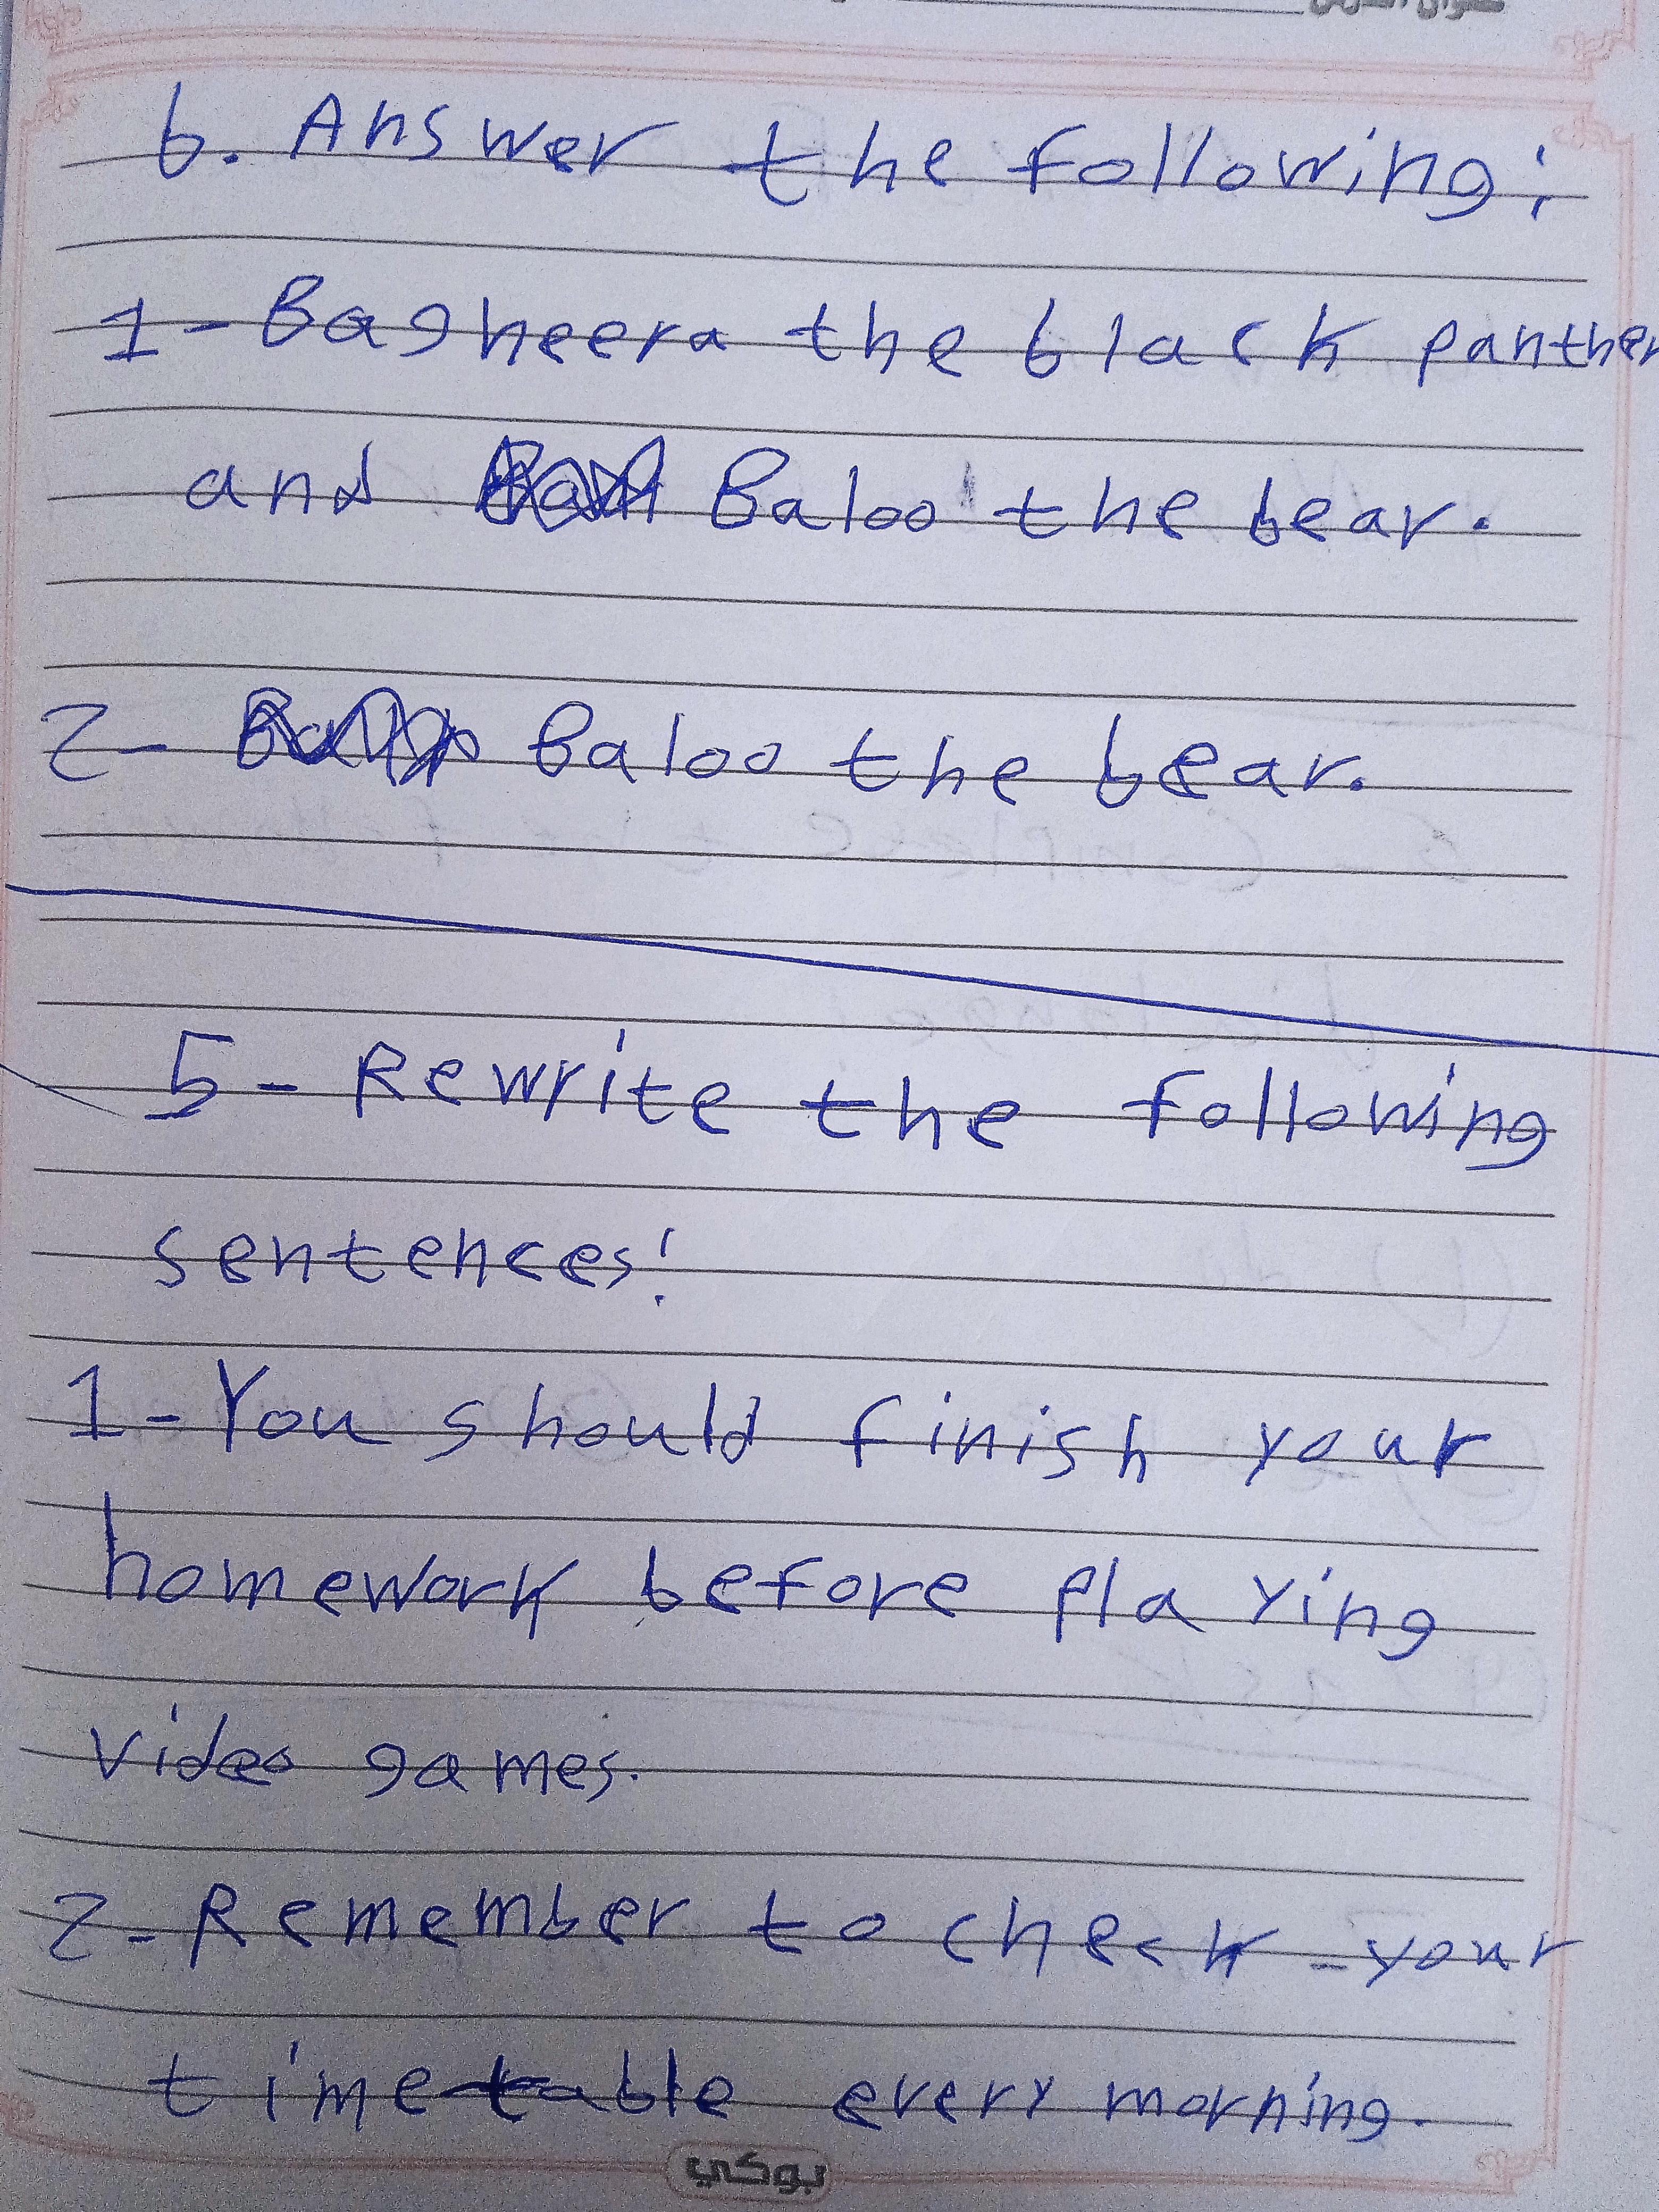 6. Answer the following:
1- Bagheera the black panther
and Baloo the bear.
2- Baloo the bear.
5- Rewrite the following
sentences:
1- You should finish your
homework before playing
video games.
2- Remember to check your
timetable every morning.
بوكي